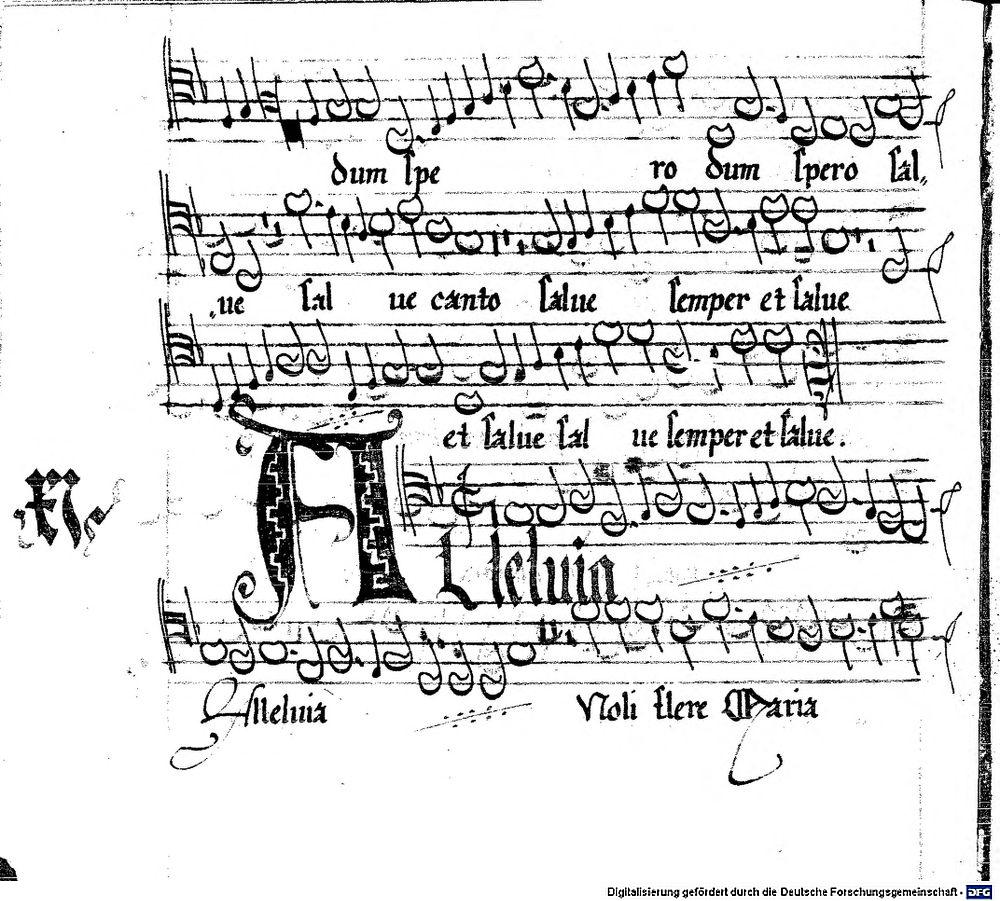 dum spe ro dum spero sal„
„ue sal ue canto salue semper et salue
et salue sal ue semper et salue.
Alleluia
Alleluià Noli flere Maria
Digitalisierung gefördert durch die Deutsche Forschungsgemeinschaft - DFG